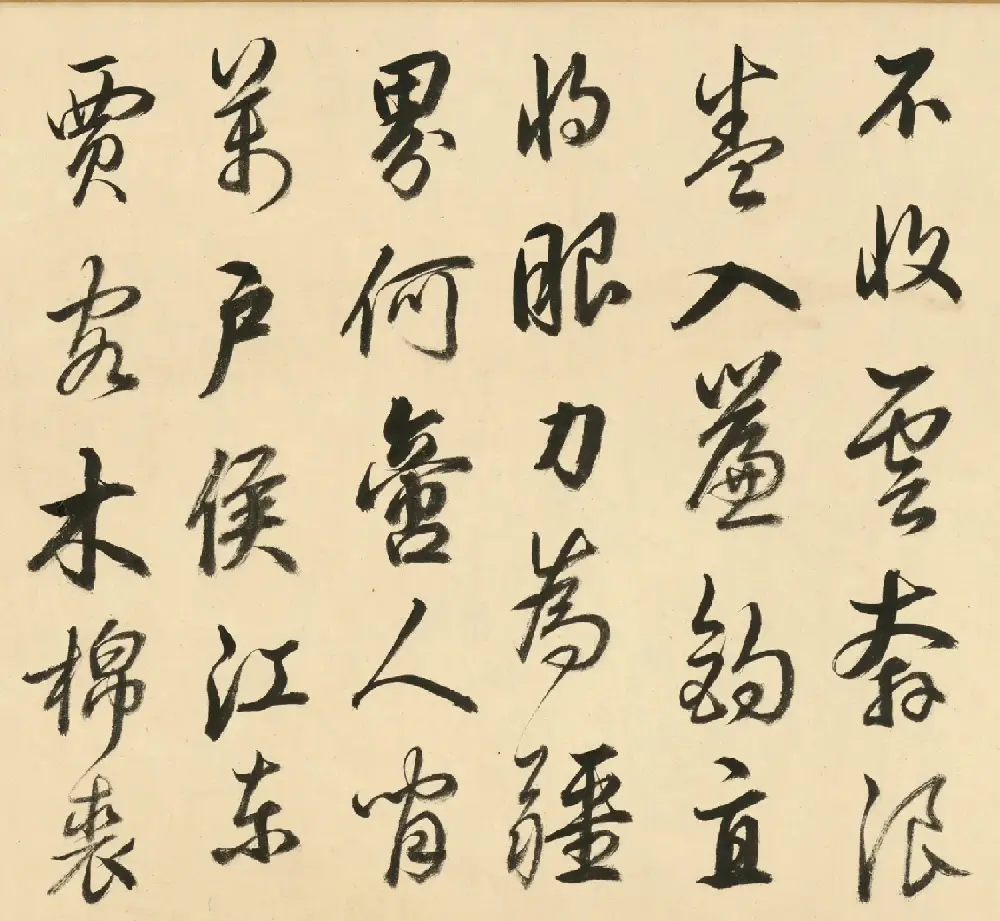 不收雲奔浪
卷入簾鉤直
將眼力為疆
界何啻人間
萬戶侯江東
賈客木棉裘